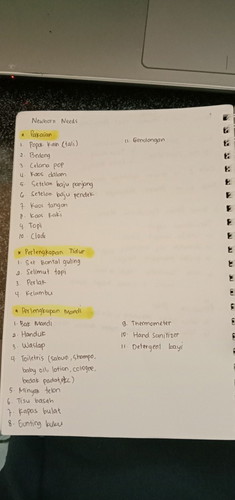 Newborn Needs
* Pakaian
1. Popok kain (tali)
2. Bedong
3. Celana pop
4. Kaos dalam
5. Setelan baju panjang
6. Setelan baju pendek
7. Kaos tangan
8. Kaos kaki
9. Topi
10. Clodi
11. Gendongan
* Perlengkapan Tidur
1. Set bantal guling
2. Selimut topi
3. Perlak
4. Kelambu
* Perlengkapan Mandi
1. Bak Mandi
2. Handuk
3. Waslap
4. Toiletris (sabun, shampo,
baby oil, lotion, cologne,
bedak padat/
5. Minyak telon
6. Tisu basah
7. Kapas bulat
8. Gunting kuku
9. Thermometer
10. Hand sanitizer
11. Detergent bayi